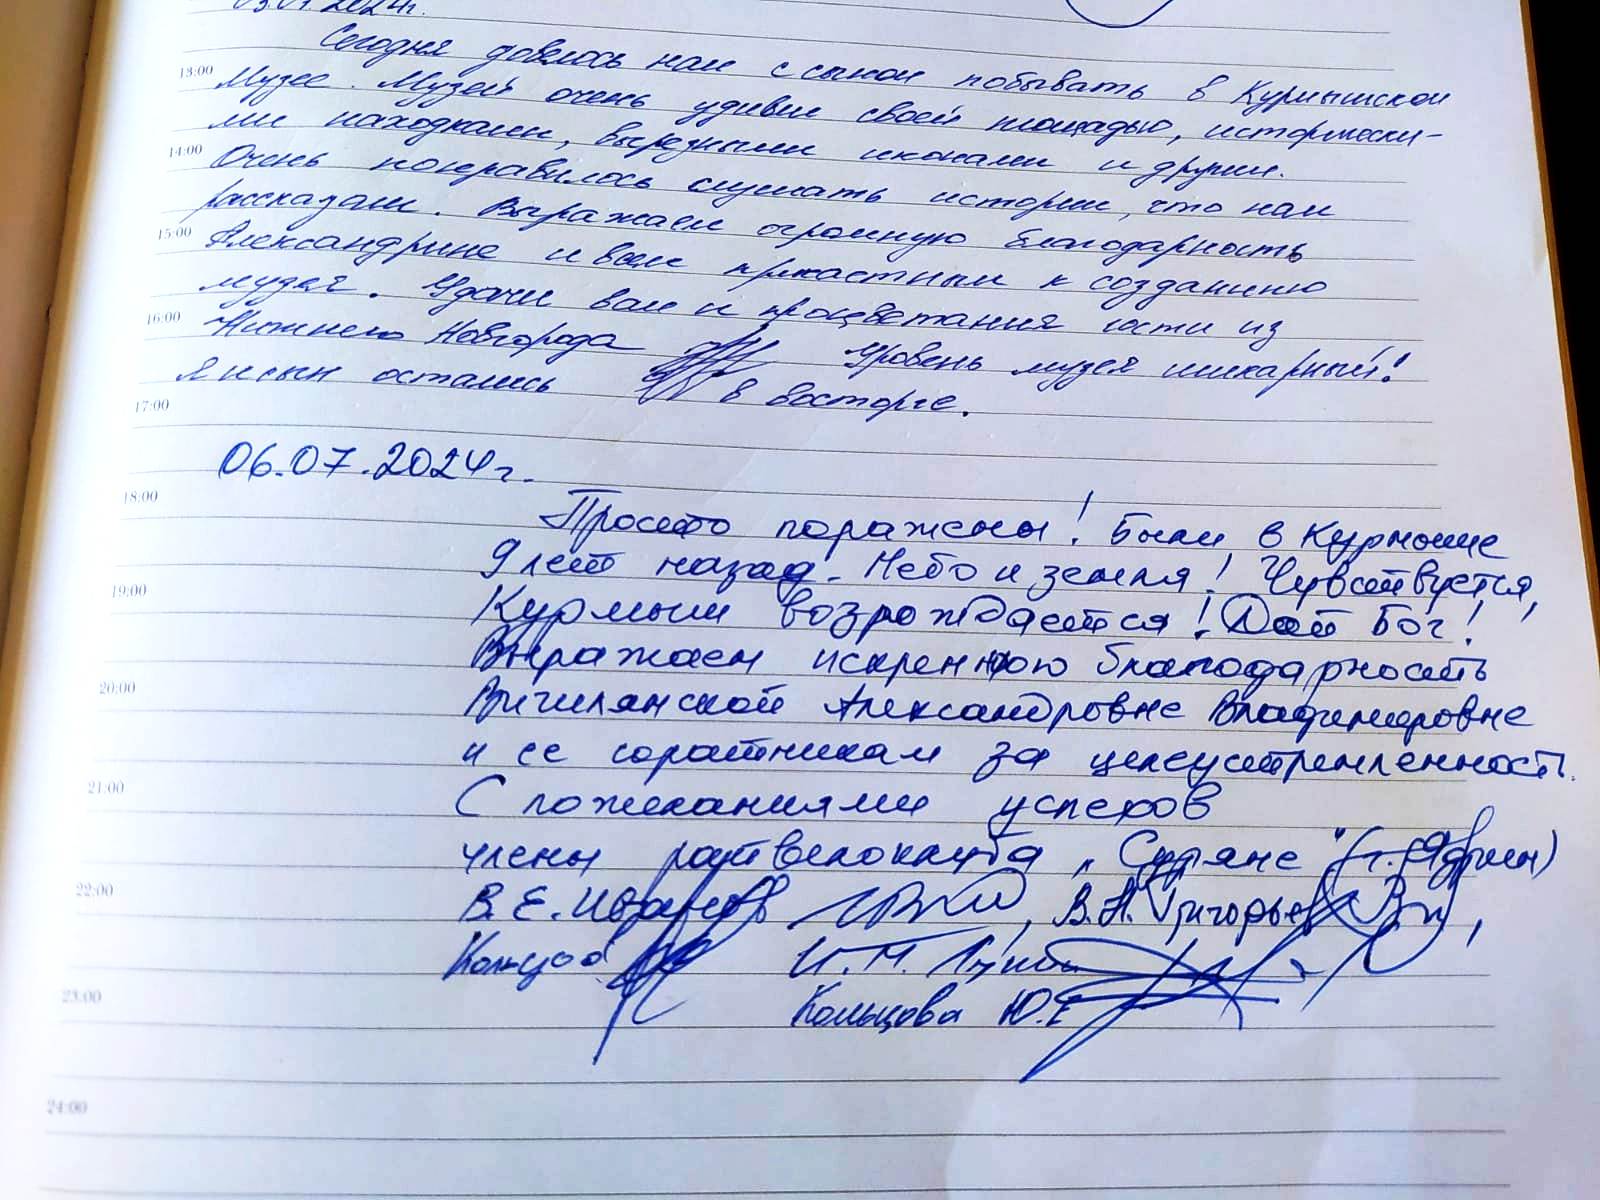 03.07.2024г.
Сегодня довелось нам с сыном побывать в Курмышском
13:00
Музее. Музей очень удивил своей площадью, исторически-
ми находками, вырезными иконами и други.
14:00
Очень понравилось слушать истории, что нам
рассказали. Выражаем огромную благодарность
15:00
Александрине и всем причастным к созданию
музея. Удачи вам и процветания гости из
16:00
Нижнего Новгорода Уровень музея шикарный!
я и сын остались в восторге.
17:00
06.07.2024г.
18:00
Просто поражены! Были в Курмыше
9 лет назад. Небо и земля! Чувствуется,
19:00
Курмыш возрождается! Дай Бог!
Выражаем искреннюю благодарность
20:00
Александровне Владимировне
и ее соратникам за целеустремленность.
21:00
С пожеланиями успехов
члены "Суряне" (г. Ядрин)
22:00
В.Е. Иванов, В.Н. Григорьев,
Кольцов И.М.
23:00
Кольцова Ю.Е
24:00